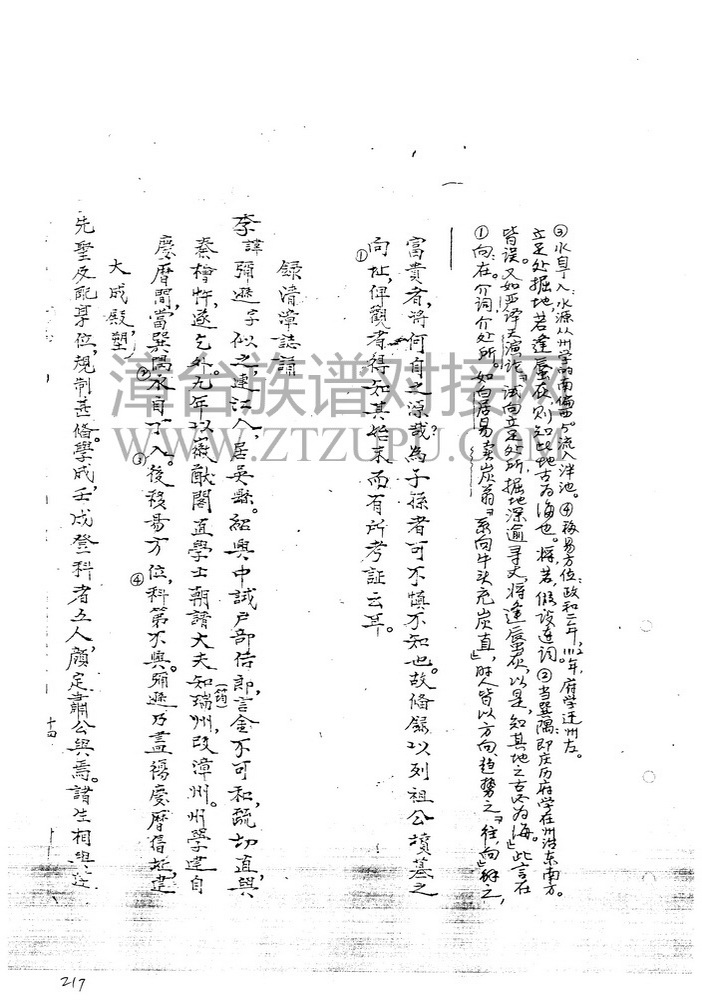 富貴者,將何自之源哉?為子孫者可不慎不知也。故備錄以列祖公墳墓之
向址,俾觀者得知其始末而有所考証云耳。
①
錄清漳誌
李諱彌遜字似之,連江人,居吳縣。紹興中試户部侍郎,言金不可和,疏切直,與
秦檜忤,遂乞外。九年以徽猷閣直學士朝請大夫知瑞州,改漳州。州學建自
(筠)
慶曆間,當巽隅水自丁入。後移易方位,科第不興。彌遜乃盡復慶曆舊址,建
② ③ ④
大成殿,塑
先聖及配享位,規制甚備。學成,壬戌登科者五人,顏定肅公與焉。諸生相與
十四
①向:在。介词介处所。如白居易《卖炭翁》“系向牛头充炭直”,时人皆以方向、趋势之“往、向”解之,
皆误。又如严译《天演论》“试向立足处所,掘地深逾寻丈,将逢蜃灰,以是,知其地之古必为海。”此言在
立足处掘地,若逢蜃灰,则知此地古为海也。将:若,假设连词。②当巽隅:即庆历府学在州治东南方。
③水自丁入:水源从州学的南偏西5°流入泮池。④移易方位:政和二年,1112年,府学迁州左。
217
漳台族谱对接网
WWW.ZTZUPU.COM